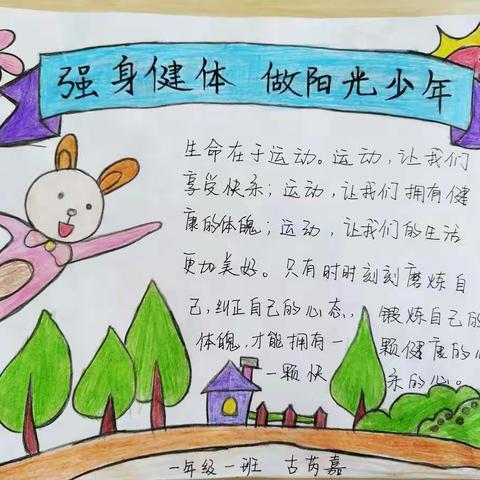 强身健体 做阳光少年
生命在于运动。运动，让我们
享受快乐；运动，让我们拥有健
康的体魄；运动，让我们的生活
更加美好。只有时时刻刻磨炼自
己，纠正自己的心态，锻炼自己的
体魄，才能拥有一颗健康的心
一颗快乐的心。
一年级一班 古芮嘉